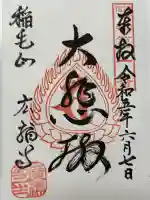 奉拝 令和五年六月七日
大悲殿
稲毛山
広福寺